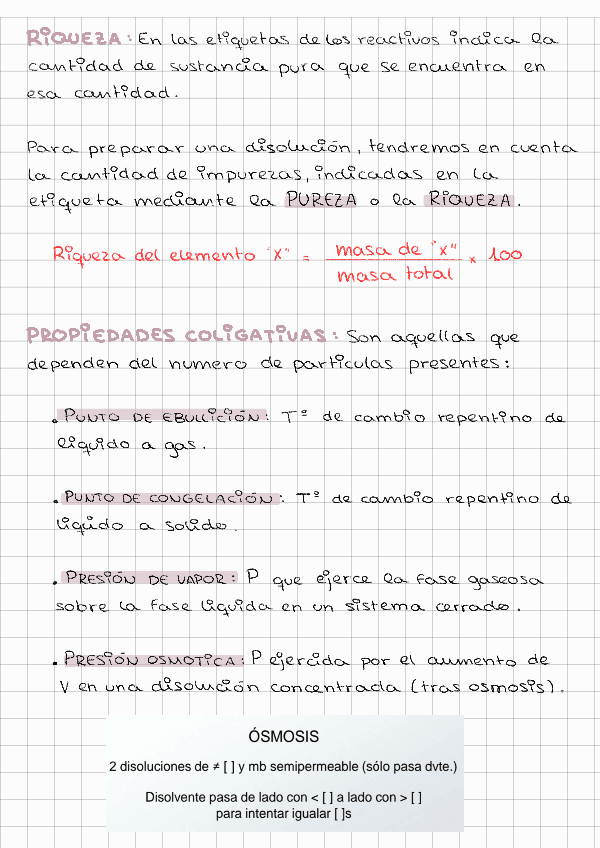 RIQUEZA: En las etiquetas de los reactivos indica la
cantidad de sustancia pura que se encuentra en
esa cantidad.
Para preparar una disolución, tendremos en cuenta
la cantidad de impurezas, indicadas en la
etiqueta mediante la PUREZA o la RIQUEZA.
Riqueza del elemento "X" = masa de "x" / masa total x 100
PROPIEDADES COLIGATIVAS: Son aquellas que
dependen del numero de particulas presentes:
• PUNTO DE EBULLICIÓN: Tº de cambio repentino de
liquido a gas.
• PUNTO DE CONGELACIÓN: Tº de cambio repentino de
liquido a solido.
• PRESIÓN DE VAPOR: P que ejerce la fase gaseosa
sobre la fase liquida en un sistema cerrado.
• PRESIÓN OSMOTICA: P ejercida por el aumento de
V en una disolución concentrada (tras osmosis).
ÓSMOSIS
2 disoluciones de ≠ [ ] y mb semipermeable (sólo pasa dvte.)
Disolvente pasa de lado con < [ ] a lado con > [ ]
para intentar igualar [ ]s